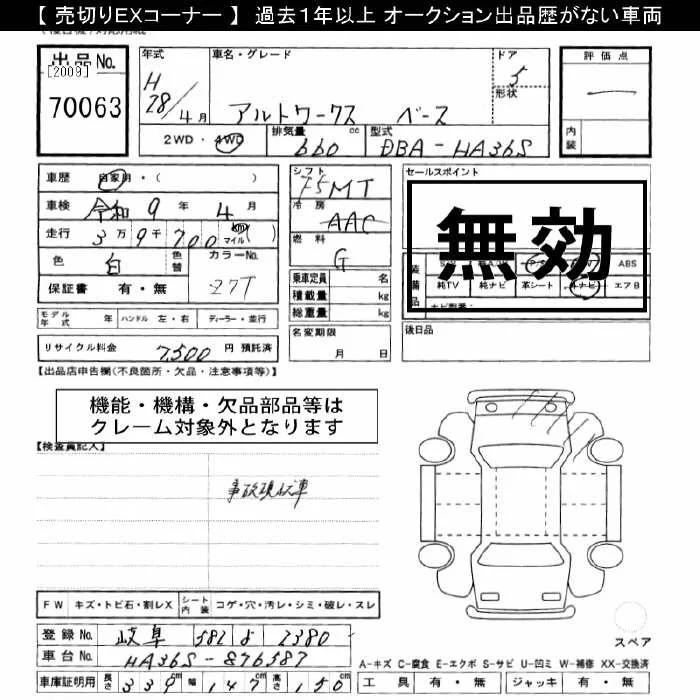 【 売切りEXコーナー 】 過去１年以上 オークション出品歴がない車両
出品No. 年式 車名・グレード ドア 評価点
[2009] H 5 ー
70063 28/4月 アルトワークス ベース 形状
2WD・4WD 排気量 660 cc 型式 DBA-HA36S 内装
車歴 自家用・( ) シフト F5MT セールスポイント
車検 令和 9 年 4 月 冷房 AAC 無効
走行 3万9千700 km マイル 燃料 G
色 白 色替 カラーNo. Z7T 乗車定員 名 ABS
保証書 有・無 積載量 kg 純TV 純ナビ 革シート エアB
総重量 kg
モデル年式 年 ハンドル 左・右 ディーラー・並行 名変期限 月 日 後日品
リサイクル料金 7,500 円 預託済
【出品店申告欄(不良箇所・欠品・注意事項等)】
機能・機構・欠品部品等は
クレーム対象外となります
【検査員記入】
事故現状車
FW キズ・トビ石・割レX シート内装 コゲ・穴・汚レ・シミ・破レ・スレ
スペア
登録No. 岐阜 582 よ 2380
車台No. HA36S-876587 A-キズ C-腐食 E-エクボ S-サビ U-凹ミ W-補修 XX-交換済
車庫証明用 長さ 339 幅 147 高さ 150 工具 有・無 ジャッキ 有・無